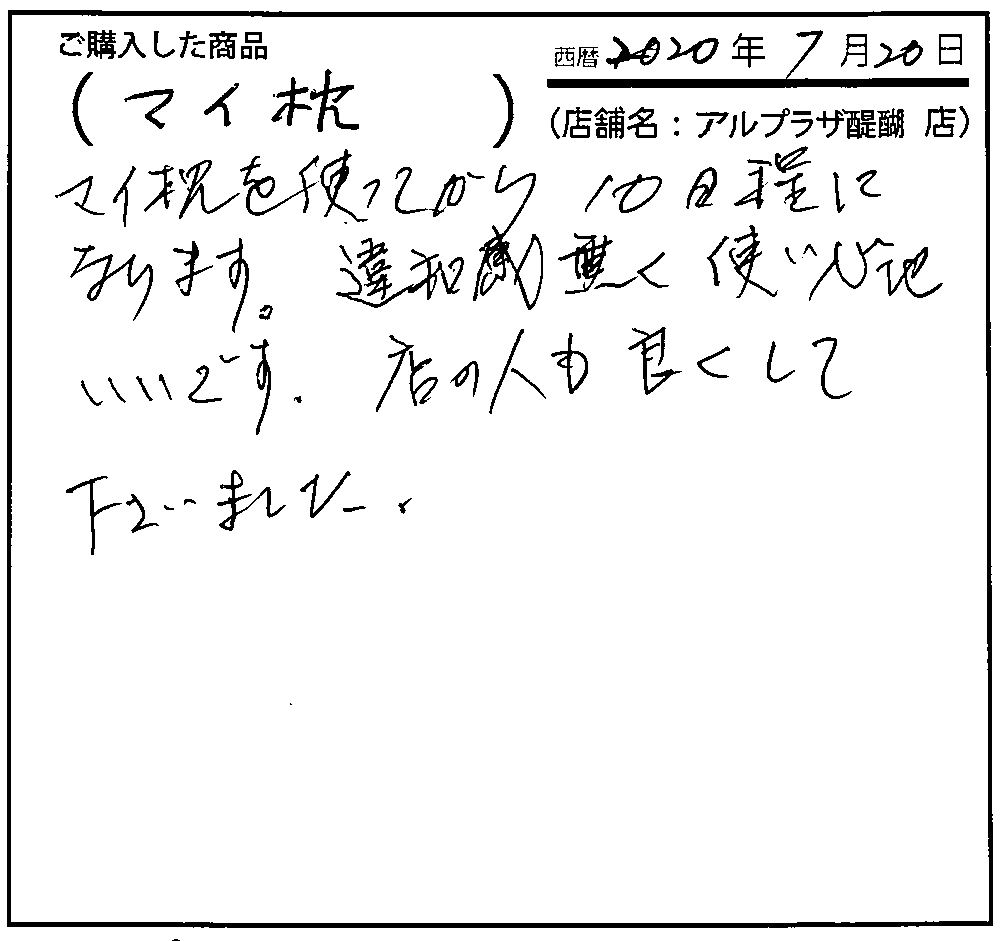 ご購入した商品
西暦 2020 年 7 月 20 日
(マイ枕)
(店舗名：アルプラザ醍醐 店)
マイ枕を使ってから 10日程に
なります。違和感無く 使い心地
いいです。店の人も 良くして
下さいました。